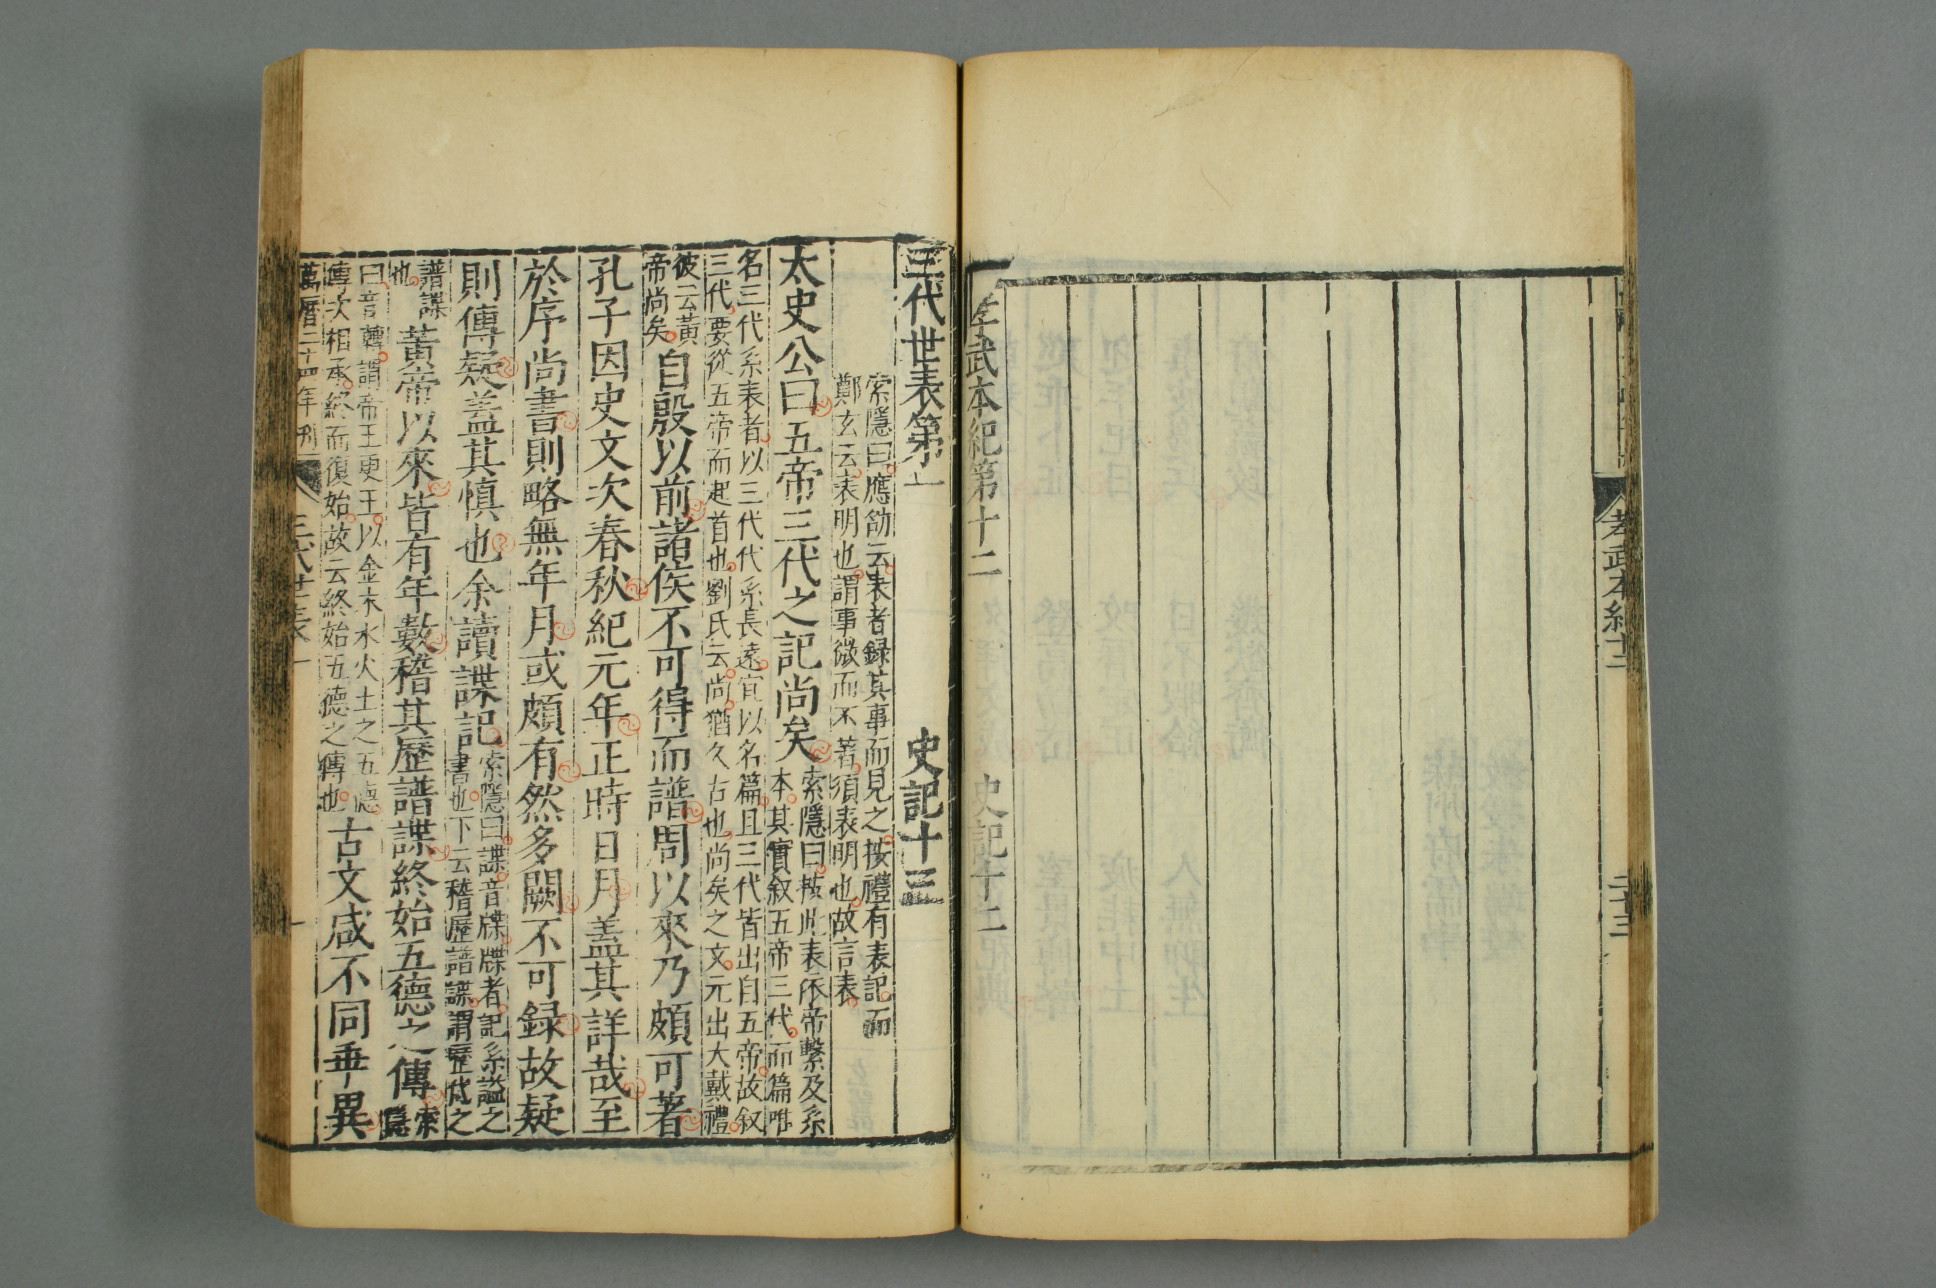 孝武本紀十二 二十三
孝武本紀第十二 史記十二
三代世表第一 史記十三
索隱曰應劭云表者録其事而見之按禮有表記而
鄭玄云表明也謂事微而不著須表明也故言表
太史公曰五帝三代之記尚矣 索隱曰按此表依帝繫及系
本其實叙五帝三代而篇唯
名三代系表者以三代代系長遠宜以名篇且三代皆出自五帝故叙
三代要從五帝而起首也劉氏云尚猶久古也尚矣之文元出大戴禮
彼云黃
帝尚矣 自殷以前諸侯不可得而譜周以來乃頗可著
孔子因史文次春秋紀元年正時日月蓋其詳哉至
於序尚書則略無年月或頗有然多闕不可録故疑
則傳疑蓋其慎也余讀諜記 索隱曰諜音牒牒者記系謚之
書也下云稽歷譜諜謂歷代之
譜諜
也 黃帝以來皆有年數稽其歷譜諜終始五德之傳 索
隱
曰音轉謂帝王更王以金木水火土之五德
傳次相承終而復始故云終始五德之傳也 古文咸不同乖異
萬曆二十四年刊 三代世表 一